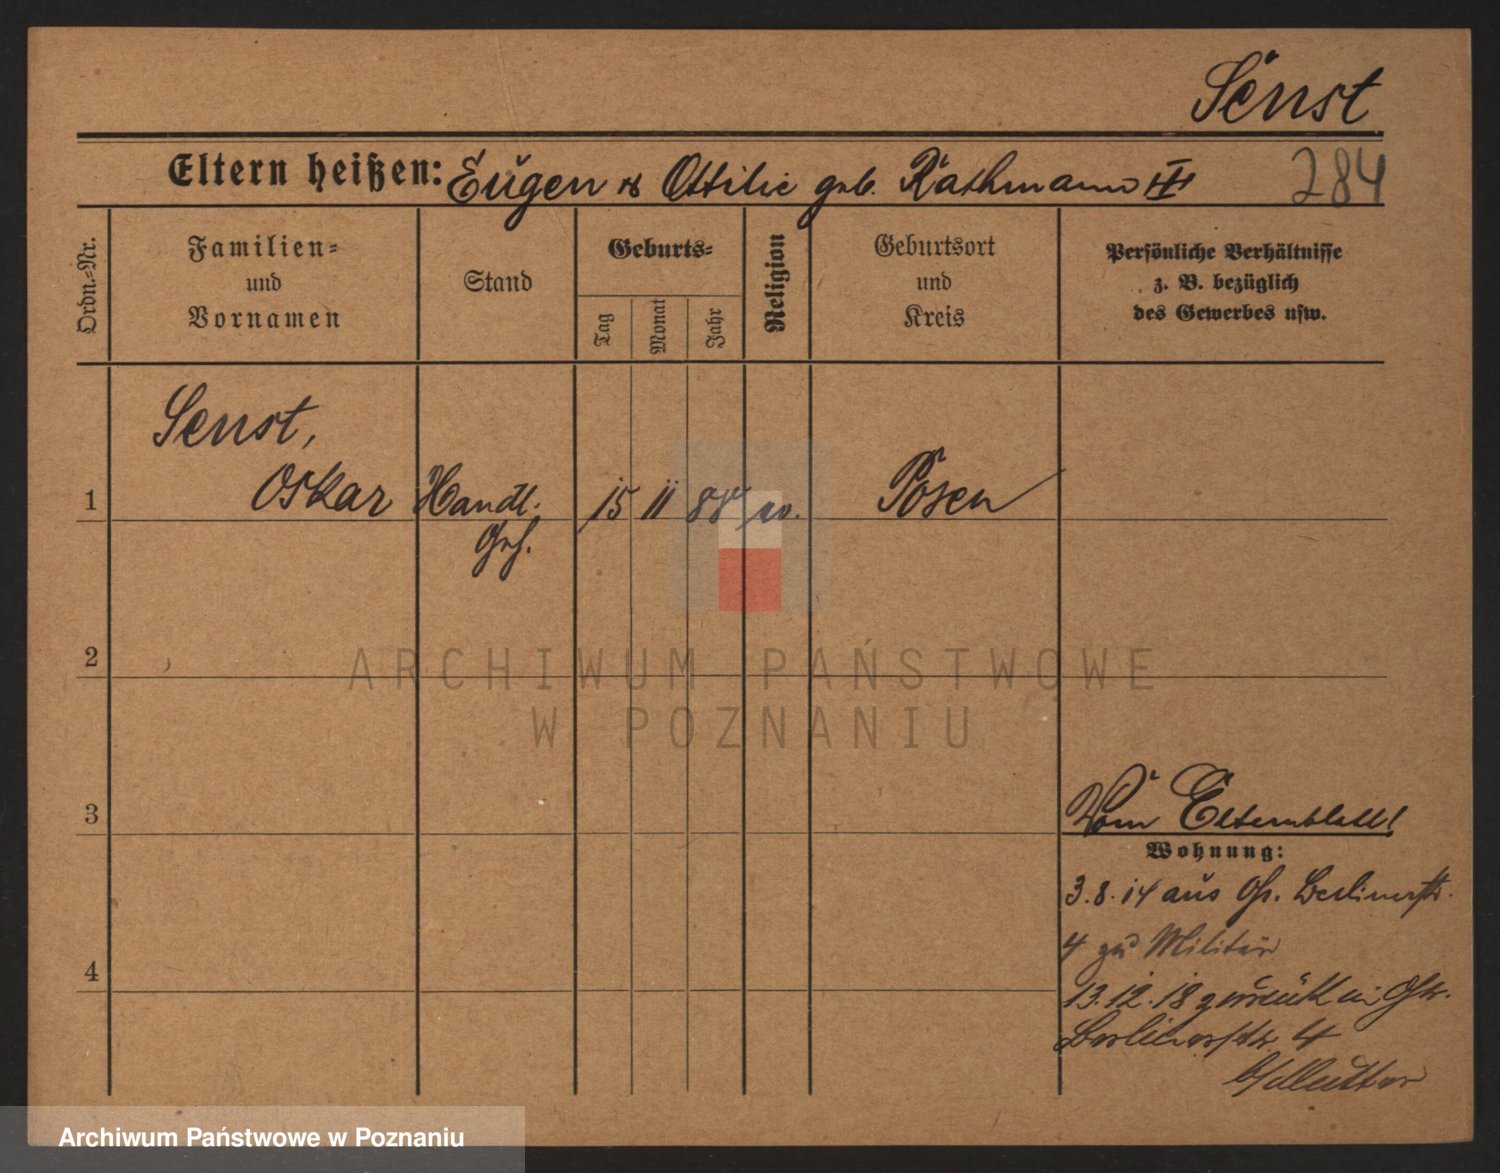 Senst.
Eltern heißen: Eugen & Ottilie geb. Rathmann III
284
Ordn.=Nr.
Familien=
und
Vornamen
Stand
Geburts=
Tag
Monat
Jahr
Religion
Geburtsort
und
Kreis
Persönliche Verhältnisse
z. B. bezüglich
des Gewerbes usw.
Senst,
1 Oskar Handl. 15 11 88 ev. Posen
Geh.
2
3
Vom Elternblatt!
Wohnung:
3.8.14 aus Gr. Berlinerstr.
4 zu Militär
4
13.12.18 zurück in Gr.
Berlinerstr. 4
b/d Mutter
ARCHIWUM PAŃSTWOWE
W POZNANIU
Archiwum Państwowe w Poznaniu